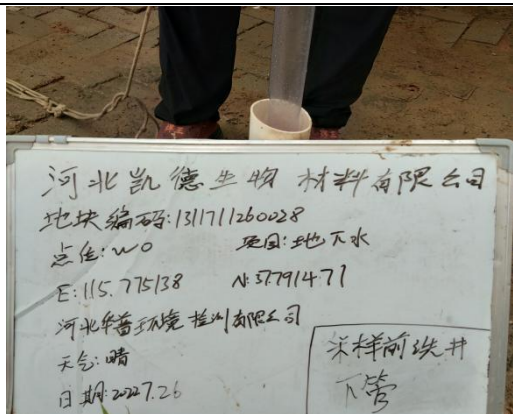 河北凯德生物材料有限公司
地块编码:1311711260028
点位:W0 项目:地下水
E:115.775138 N:37.791471
河北华普环境检测有限公司
天气:晴
日期:2022.7.26
采样前洗井
下管